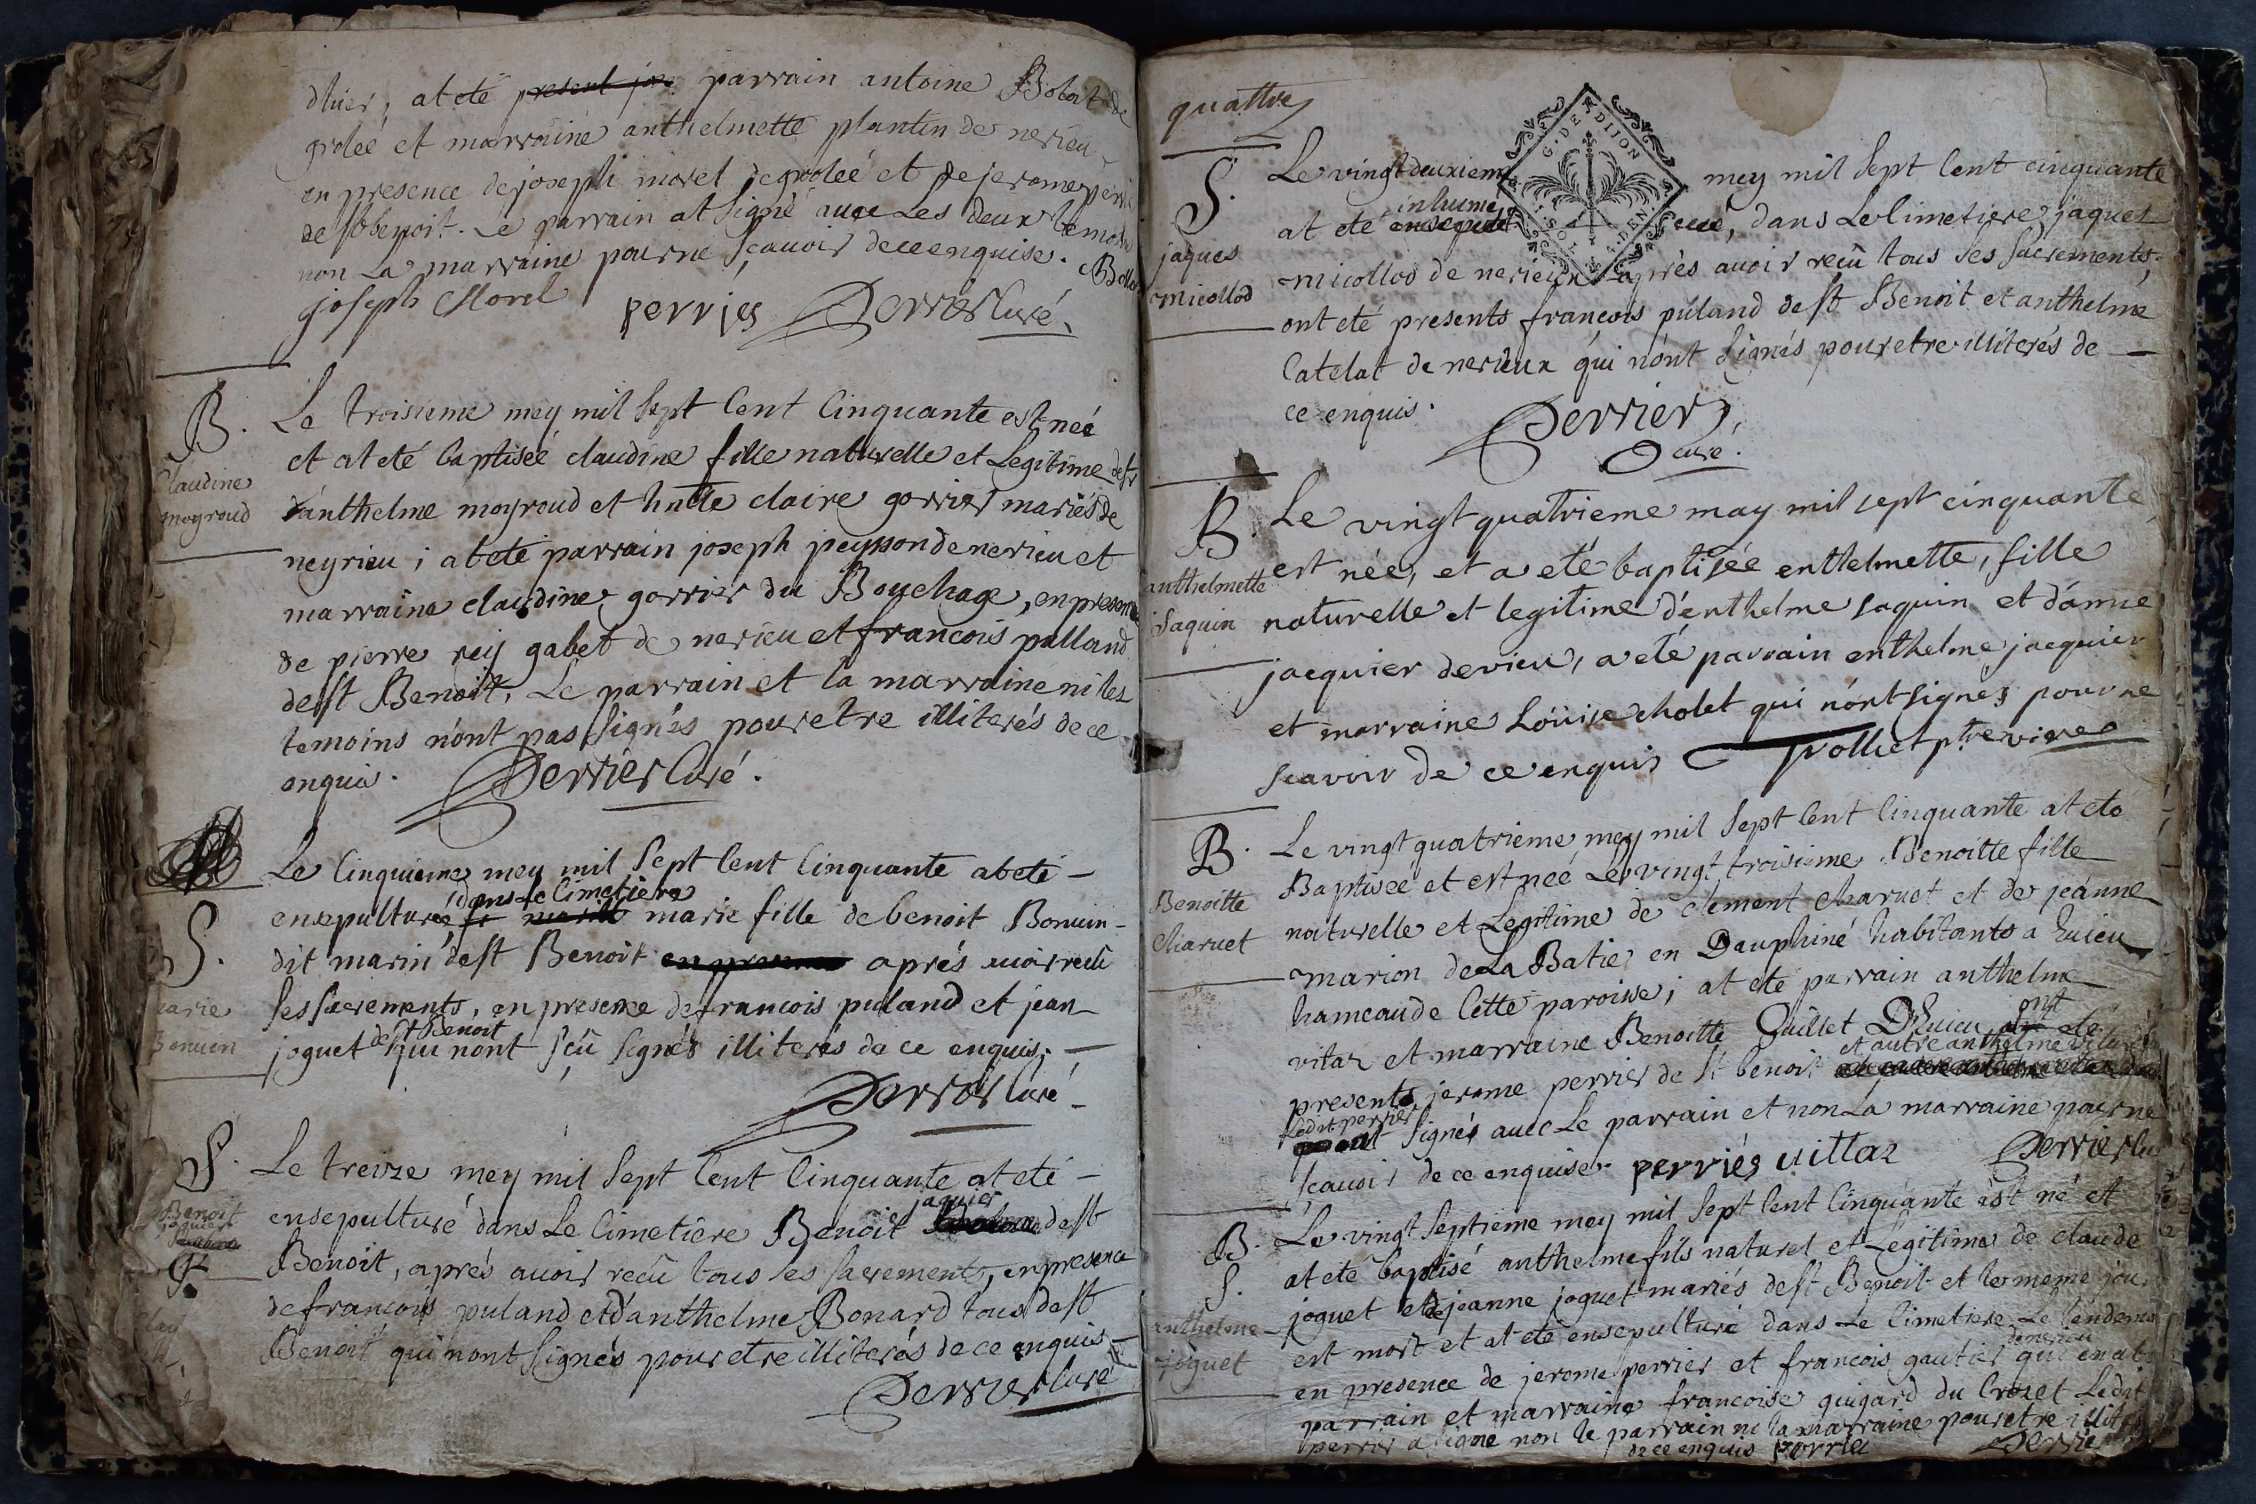 dhier, at eté present parrain antoine Bolat de
grolée et marraine anthelmette plantin de nerieu
en presence de joseph morel de grolée et de jerome
de st benoit. Le parrain at signé avec Les deux temoins
non La marraine pour ne sçavoir de ce enquise.
joseph Morel perries Perrier Curé.
B. Claudine moyroud
Le troisieme mey mil sept Cent Cinquante est née
et at eté baptiseé claudine fille naturelle et Legitime
d'anthelme moyroud et claire gorrier mariés de
neyrieu ; at eté parrain joseph peysson de nerieu et
marraine claudine gorrier du Bouchage, en presence
de pierre rey gabet de nerieu et francois pulland
de st Benoit, Le parrain et la marraine ni les
temoins n'ont pas signés pour etre illiterés de ce
enquis. Perrier Curé.
Le Cinquieme mey mil sept Cent Cinquante at eté
dans le Cimetiere
ensepulturé marie fille de benoit Bonuin
S. marie Bonuin
dit marin de st Benoit aprés auoir reçû
ses sacrements, en presence de francois puland et jean
de st Benoit
joguet qui nont sçû signés illiterés de ce enquis.
Perrier Curé
S. Benoit jaquier
Le treize mey mil sept Cent Cinquante at eté
jaquier
ensepulturé dans Le Cimetiere Benoit de st
Benoit, aprés auoir recû tous ses sacrements, en presence
de francois puland et d'anthelme Bonard tous de st
Benoit qui nont signés pour etre illiterés de ce enquis
Perrier Curé
quattre
G. DE DIJON
S. jaques micollod
Le vingt deuxieme mey mil sept Cent cinquante
inhumé
at eté ensepulturé, dans Le Cimetiere jaques
micollod de nerieux aprés auoir reçû tous ses sacrements,
ont eté presents francois puland de st Benoit et anthelme
Catelat de nerieux qui n'ont signés pour etre illiterés de
ce enquis. Perrier,
curé.
B anthelmette saquin
Le vingt quatrieme may mil sept cinquante
est née, et a eté baptisée enthelmette, fille
naturelle et legitime d'enthelme saquin et d'anne
jacquier de vieu, a eté parrain enthelme jacquier
et marraine Loüise cholet qui n'ont signés pour ne
scavoir de ce enquis Trolliet ptre vicre
B. Benoitte Charuet
Le vingt quatrieme mey mil sept Cent Cinquante at eté
Baptiseé et est neé Le vingt troisieme Benoitte fille
naturelle et Legitime de clement Charuet et de jeanne
marion de La Batie en Dauphiné habitants a huieu
hameau de Cette paroisse ; at eté parrain anthelme
ont
vitaz et marraine Benoitte Guillet D'huieu eté
et autre anthelme vitaz
presents jerome perrier de st benoit
Ledit perrier
signés auec Le parrain et non La marraine pour ne
sçauoir de ce enquise. perriés vittaz Perrier Cu
B. S. anthelme joguet
Le vingt septieme mey mil sept Cent Cinquante est né et
at eté baptisé anthelme fils naturel et Legitime de claude
joguet et de jeanne joguet mariés de st Benoit et le meme jour
est mort et at eté ensepulturé dans Le Cimetiere Le Lendemain
de nerieu
en presence de jerome perrier et francois gautier qui en at
parrain et marraine francoise guigard du Crozet Ledit
perrier a signé non le parrain ni la marraine pour etre
de ce enquis perries Perrier